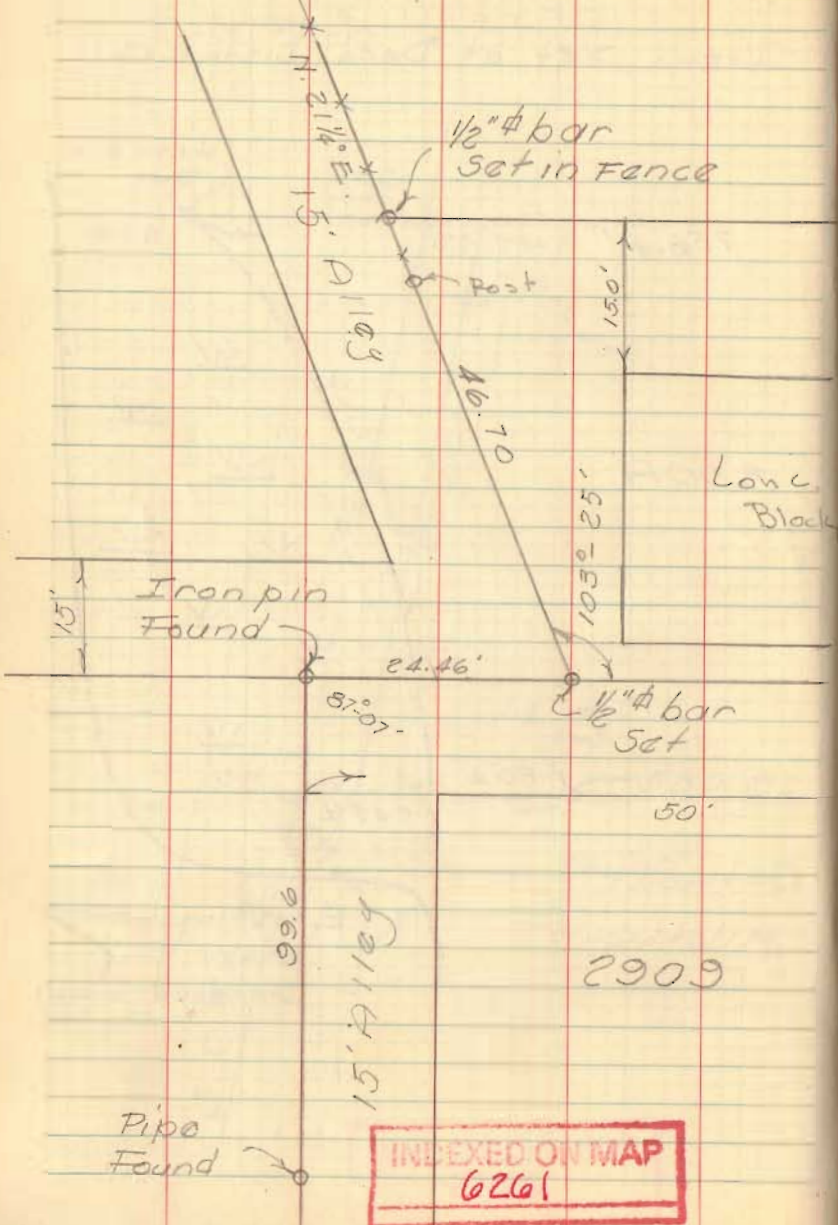 1/2"ϕ bar
Set in Fence
N. 21 1/4° E.
15' Alley
Post
15.0'
46.70
103°-25'
Block
15'
Iron pin
Found
24.46'
87°-07'
1/2"ϕ bar
Set
50'
99.6
15' Alley
2909
Pipe
Found
INDEXED ON MAP
6261